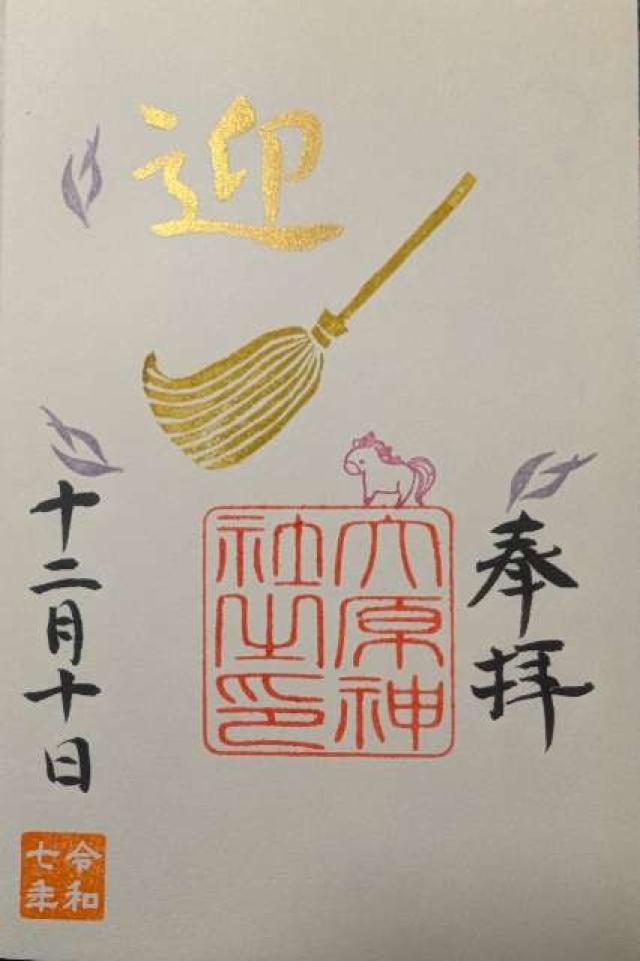 奉拝
迎
六原神
社之印
十二月十日
令和
七年